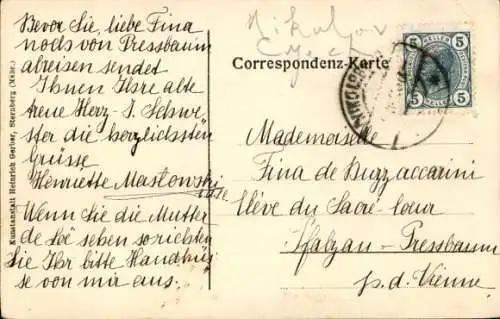 Bevor Sie, liebe Fina
noch von Pressbaum
abreisen sendet
Ihnen Ihre alte
treue Herz-J. Schwe-
ster die herzlichsten
Grüsse
Henriette Maslowski
Wenn Sie die Mutter
de Loë sehen so richten
Sie Ihr bitte Handküs
se von mir aus.
Kunstanstalt Heinrich Gerber, Sternberg (Mähr.)
Nikolov
Correspondenz-Karte
5 HELLER 5
5 5
NIKOLSBURG
Mademoiselle
Fina de Buzzaccarini
Elève du Sacré-Coeur
Pfalzau-Pressbaum
p. d. Vienne